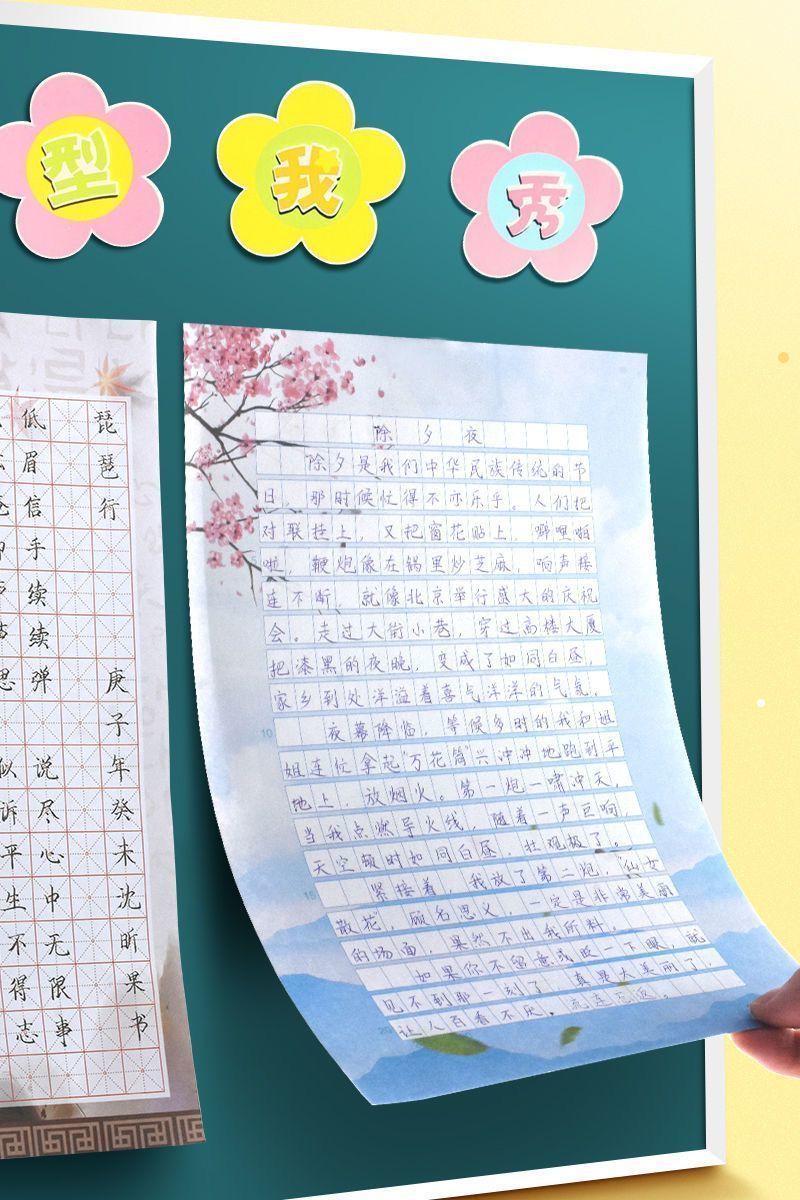 型 我 秀
琵琶行
庚子年癸未沈昕果书
低眉信手续续弹
说尽心中无限事
除夕夜
除夕是我们中华民族传统的节
日，那时候忙得不亦乐乎。人们把
对联挂上，又把窗花贴上，噼哩啪
啦，鞭炮像在锅里炒芝麻，响声接
连不断，就像北京举行盛大的庆祝
会。走过大街小巷，穿过高楼大厦
把漆黑的夜晚，变成了如同白昼，
家乡到处洋溢着喜气洋洋的气氛，
10
夜幕降临，等候多时的我和姐
姐连忙拿起"万花筒"兴冲冲地跑到平
地上，放烟火。第一炮一啸冲天，
当我点燃导火线，随着一声巨响，
天空顿时如同白昼，壮观极了。
15
紧接着，我放了第二炮，"仙女
散花"，顾名思义，一定是非常美丽
的场面，果然不出我所料。
如果你不留意或眨一下眼，就
见不到那一刻了，真是太美丽了，
20
让人百看不厌，流连忘返。